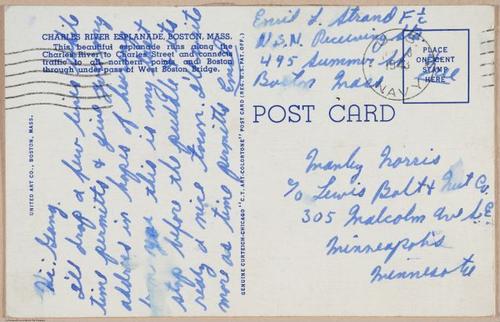 CHARLES RIVER ESPLANADE, BOSTON, MASS.
This beautiful esplanade runs along the
Charles River to Charles Street and connects
traffic to all northern points and Boston
through under-pass of West Boston Bridge.
Hi. Gang.
I'll drop a few lines while
time permits & give you my
address in hopes of hearing
from you this is my last
stop before the puddle. It's
really a nice town. I'll write
more as time permits Emil
UNITED ART CO., BOSTON, MASS.
GENUINE CURTEICH-CHICAGO "C.T. ART-COLORTONE" POST CARD (REG. U.S. PAT. OFF.)
Emil L. Strand F 1/c
U.S.N. Receiving Sta
495 Summer St.
Boston Mass.
Free
NAVY
PLACE
ONE CENT
STAMP
HERE
POST CARD
Manley Norris
c/o Lewis Bolt & Nut Co.
305 Malcolm Ave S.E.
Minneapolis
Minnesota